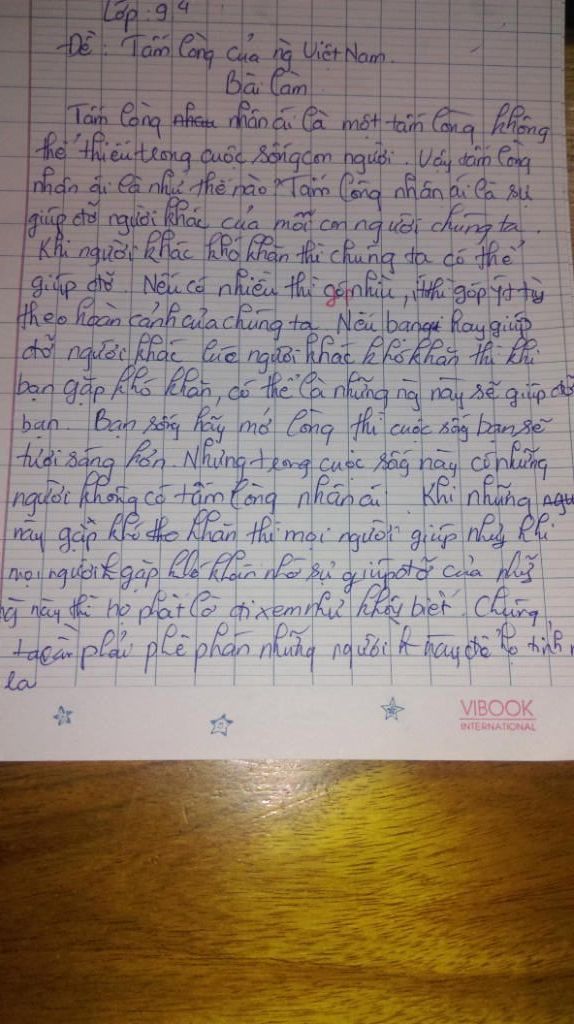 Lớp : 9⁴
Đề : Tấm lòng của ng Việt Nam.
Bài làm
Tấm lòng nhân ái là một tấm lòng không
thể thiếu trong cuộc sống con người. Vậy tấm lòng
nhân ái là như thế nào? Tấm lòng nhân ái là sự
giúp đỡ người khác của mỗi con người chúng ta.
Khi người khác khó khăn thì chúng ta có thể
giúp đỡ. Nếu có nhiều thì góp nhìu, ít thì góp ít tùy
theo hoàn cảnh của chúng ta. Nếu bạn hay giúp
đỡ người khác lúc người khác khó khăn thì khi
bạn gặp khó khăn, có thể là những ng này sẽ giúp đỡ
bạn. Bạn sống hãy mở lòng thì cuộc sốg bạn sẽ
tươi sáng hơn. Nhưng trong cuộc sốg này có những
người không có tấm lòng nhân ái. Khi những
này gặp khó khăn thì mọi người giúp nhưg khi
mọi người gặp khó khăn nhờ sự giúp đỡ của nhữg
ng này thì họ phát lờ đi xem như khôg biết. Chúng
ta cần phải phê phán những người k này để họ tỉnh
la
VIBOOK
INTERNATIONAL